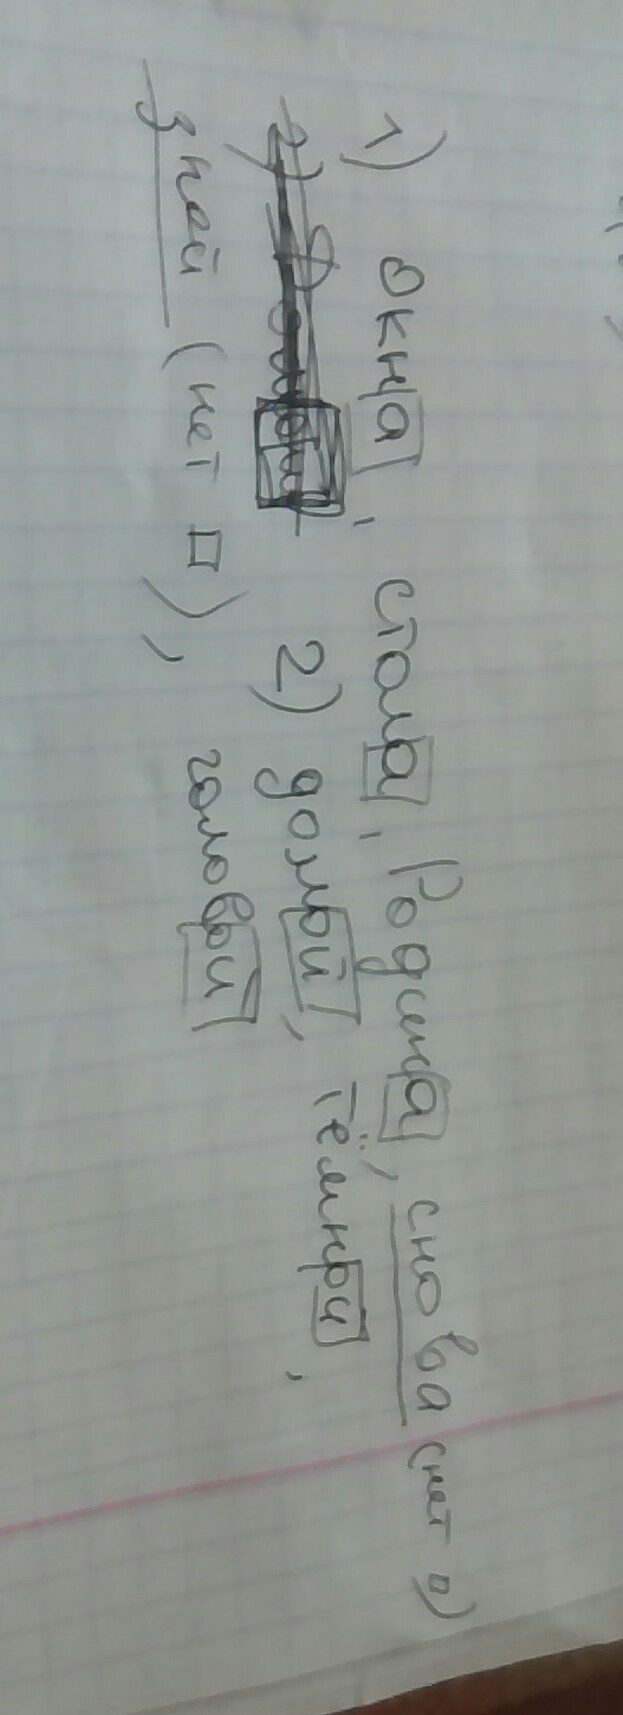 1) окна, стола, Родина, снова (нет □)
2) домой, тёмной,
зной (нет □), головой